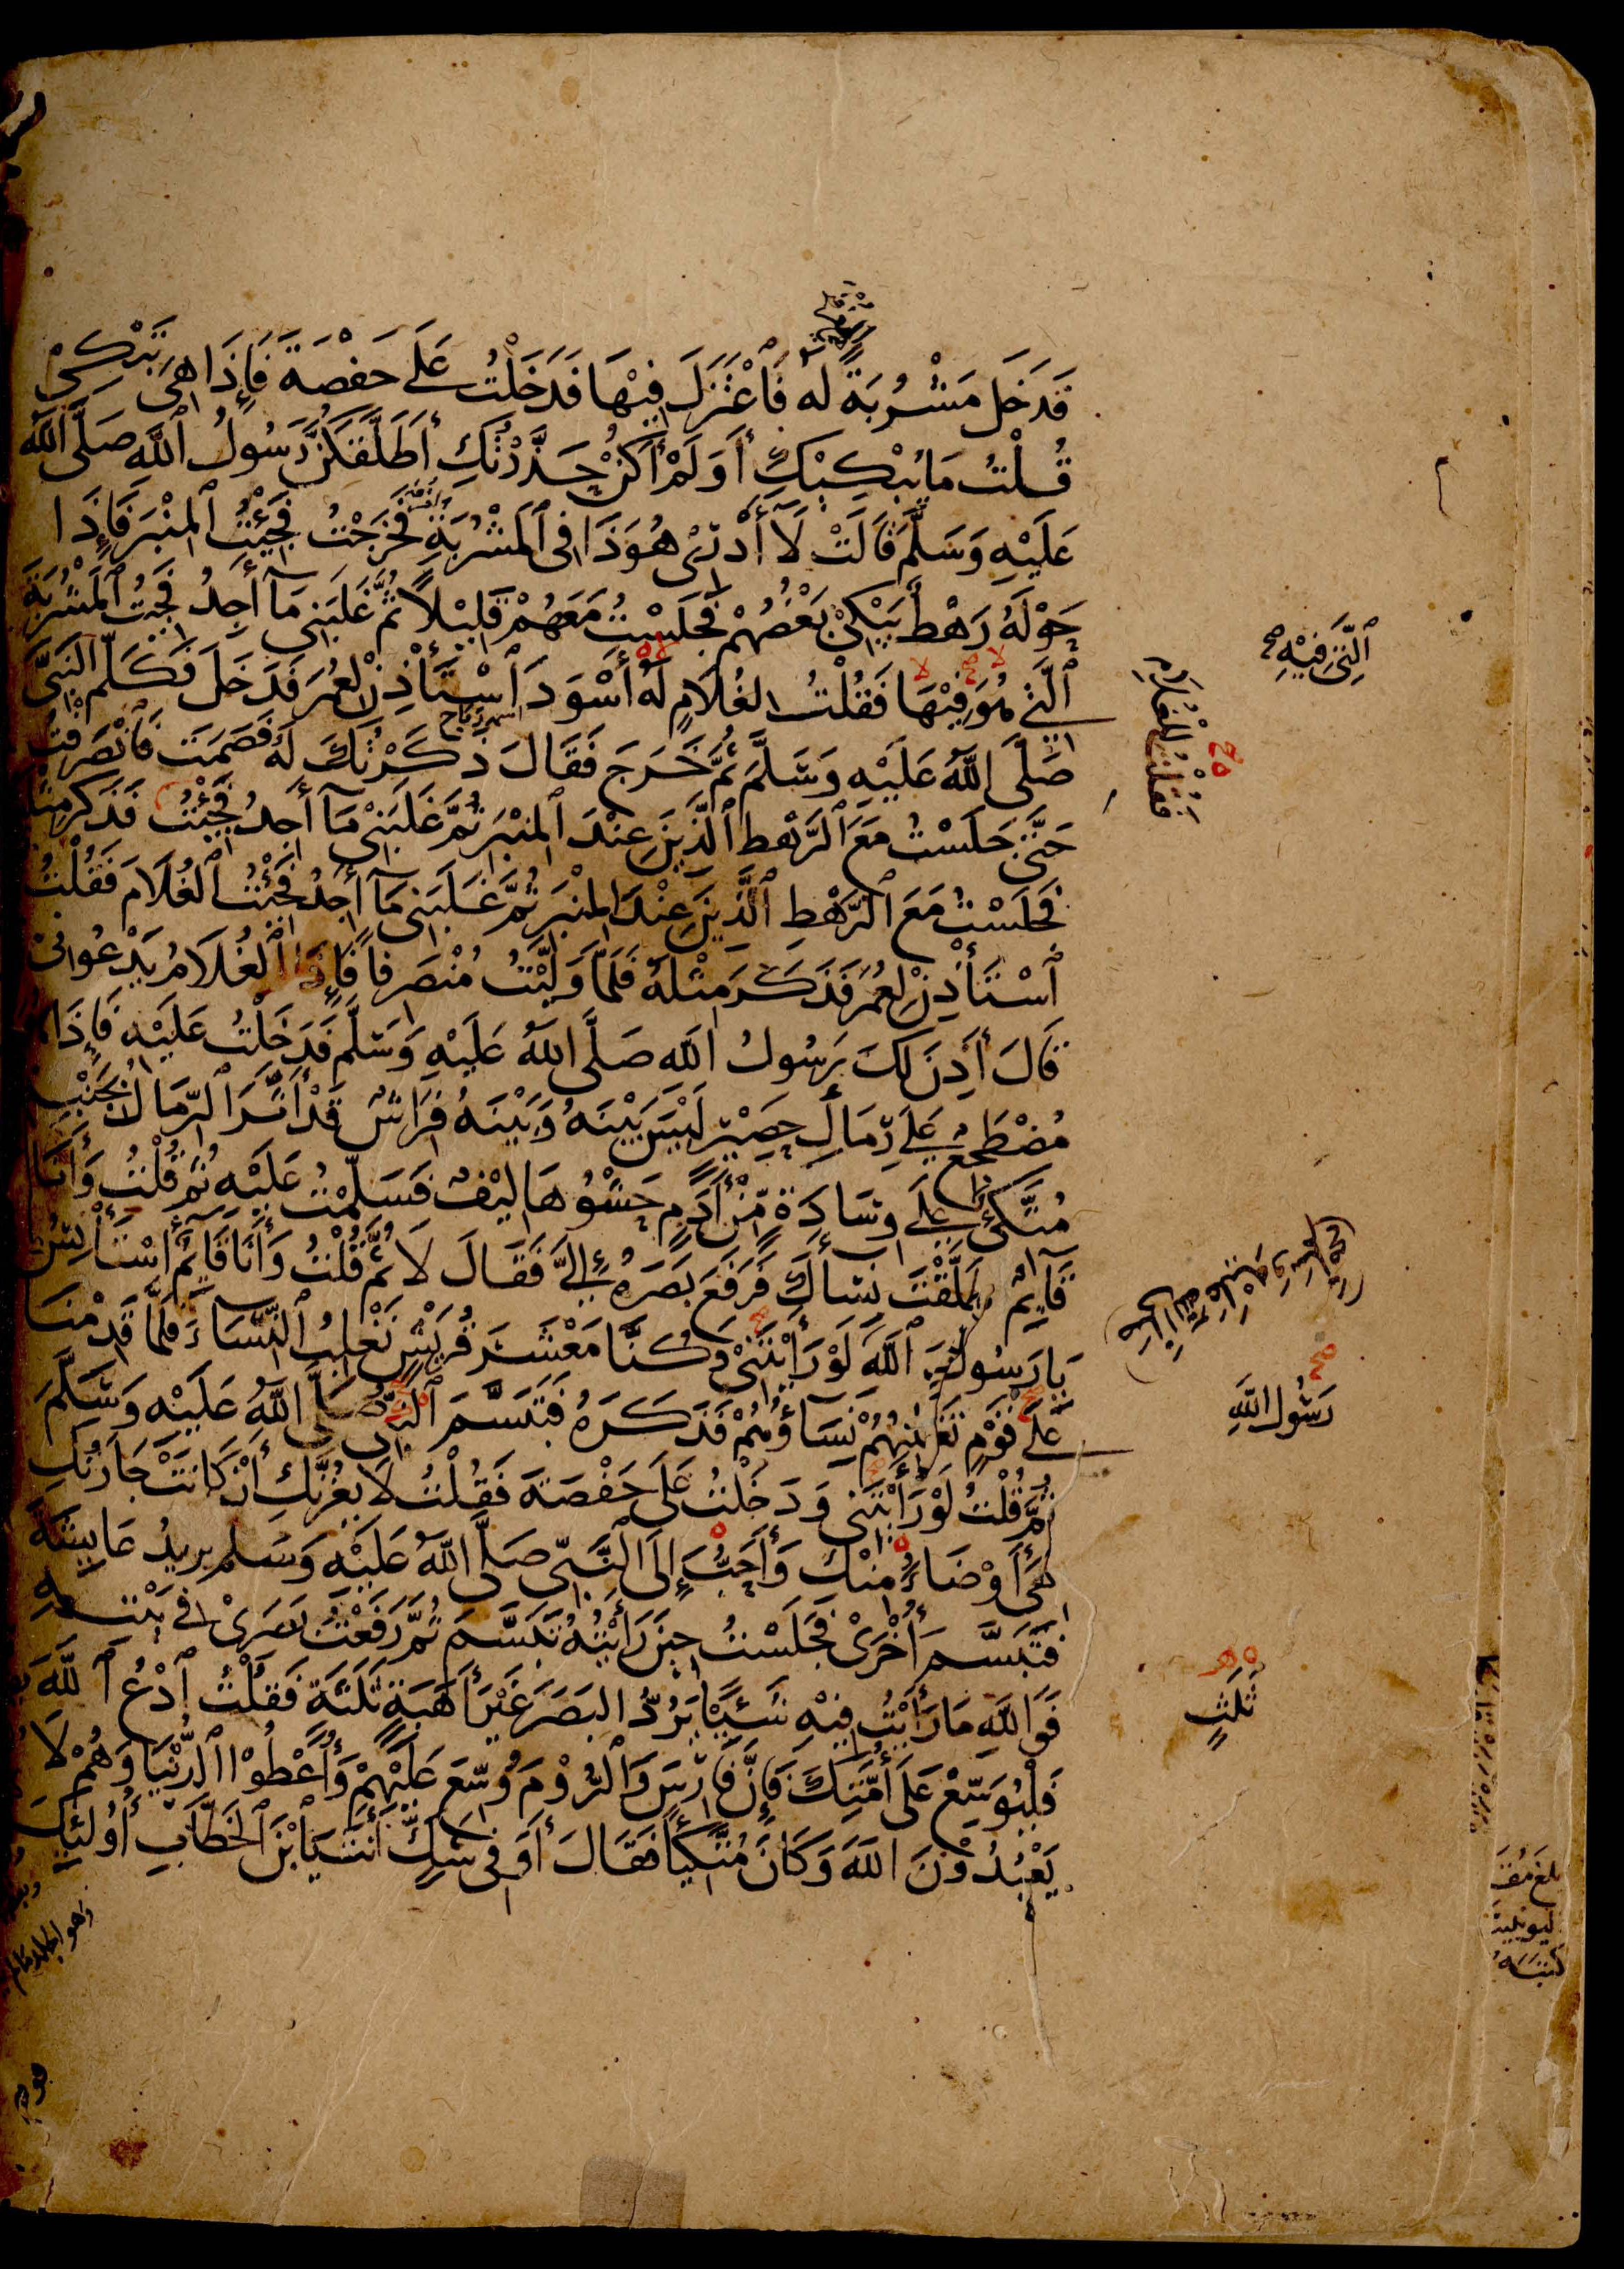 فَدَخَلَ مَشْرُبَةً لَهُ فَاعْتَزَلَ فِيْهَا فَدَخَلْتُ عَلَى حَفْصَةَ فَإِذَا هِىَ تَبْكِىْ
قُلْتُ مَا يُبْكِيْكِ أَوَلَمْ أَكُنْ حَذَّرْتُكِ أَطَلَّقَكُنَّ رَسُولُ ٱللَّهِ صَلَّى اللَّهُ
عَلَيْهِ وَسَلَّمَ قَالَتْ لَا أَدْرِىْ هُوَ ذَا فِى ٱلْمَشْرُبَةِ فَخَرَجْتُ فَجِئْتُ ٱلْمِنْبَرَ فَإِذَا
حَوْلَهُ رَهْطٌ يَبْكِىْ بَعْضُهُمْ فَجَلَسْتُ مَعَهُمْ قَلِيْلًا ثُمَّ غَلَبَنِى مَا أَجِدُ فَجِئْتُ ٱلْمَشْرُبَةَ
ٱلَّتِىْ هُوَ فِيْهَا فَقُلْتُ لِغُلَامٍ لَهُ أَسْوَدَ ٱسْتَأْذِنْ لِعُمَرَ فَدَخَلَ فَكَلَّمَ النَّبِىَّ
اسمه رباح
صَلَّى اللَّهُ عَلَيْهِ وَسَلَّمَ ثُمَّ خَرَجَ فَقَالَ ذَكَرْتُكَ لَهُ فَصَمَتَ فَانْصَرَفْتُ
حَتَّى جَلَسْتُ مَعَ ٱلرَّهْطِ ٱلَّذِيْنَ عِنْدَ ٱلْمِنْبَرِ ثُمَّ غَلَبَنِىْ مَا أَجِدُ فَجِئْتُ فَذَكَرَ مِثْلَهُ
فَجَلَسْتُ مَعَ ٱلرَّهْطِ ٱلَّذِيْنَ عِنْدَ المِنْبَرِ ثُمَّ غَلَبَنِى مَا أَجِدُ فَجِئْتُ ٱلْغُلَامَ فَقُلْتُ
ٱسْتَأْذِنْ لِعُمَرَ فَذَكَرَ مِثْلَهُ فَلَمَّا وَلَّيْتُ مُنْصَرِفًا فَإِذَا ٱلْغُلَامُ يَدْعُوْنِىْ
قَالَ أَذِنَ لَكَ رَسُولُ اللهِ صَلَّى اللَّهُ عَلَيْهِ وَسَلَّمَ فَدَخَلْتُ عَلَيْهِ فَإِذَا هُوَ
مُضْطَجِعٌ عَلَى رِمَالِ حَصِيْرٍ لَيْسَ بَيْنَهُ وَبَيْنَهُ فِرَاشٌ قَدْ أَثَّرَ الرِّمَالُ بِجَنْبِهِ
مُتَّكِئٌ عَلَى وِسَادَةٍ مِّنْ أَدَمٍ حَشْوُهَا لِيْفٌ فَسَلَّمْتُ عَلَيْهِ ثُمَّ قُلْتُ وَأَنَا
قَائِمٌ طَلَّقْتَ نِسَاءَكَ فَرَفَعَ بَصَرَهُ إِلَىَّ فَقَالَ لَا ثُمَّ قُلْتُ وَأَنَا قَائِمٌ أَسْتَأْنِسُ
يَا رَسُولَ ٱللَّهِ لَوْ رَأَيْتَنِىْ وَكُنَّا مَعْشَرَ قُرَيْشٍ نَغْلِبُ ٱلنِّسَاءَ فَلَمَّا قَدِمْنَا
عَلَى قَوْمٍ تَغْلِبُهُمْ نِسَاؤُهُمْ فَذَكَرَهُ فَتَبَسَّمَ ٱلنَّبِىُّ صَلَّى اللَّهُ عَلَيْهِ وَسَلَّمَ
ثُمَّ قُلْتُ لَوْ رَأَيْتَنِى وَدَخَلْتُ عَلَى حَفْصَةَ فَقُلْتُ لَا يَغُرَّنَّكِ أَنْ كَانَتْ جَارَتُكِ
هِىَ أَوْضَأَ مِنْكِ وَأَحَبَّ إِلَى النَّبِىِّ صَلَّى اللَّهُ عَلَيْهِ وَسَلَّمَ يُرِيدُ عَائِشَةَ
فَتَبَسَّمَ أُخْرَىْ فَجَلَسْتُ حِيْنَ رَأَيْتُهُ تَبَسَّمَ ثُمَّ رَفَعْتُ بَصَرِىْ فِى بَيْتِهِ
فَوَاللَّهِ مَا رَأَيْتُ فِيْهِ شَيْئًا يَرُدُّ البَصَرَ غَيْرَ أَهَبَةٍ ثَلَثَةٍ فَقُلْتُ ٱدْعُ ٱللَّهَ
فَلْيُوَسِّعْ عَلَى أُمَّتِكَ فَإِنَّ فَارِسَ وَٱلرُّوْمَ وُسِّعَ عَلَيْهِمْ وَأُعْطُوْا ٱلدُّنْيَا وَهُمْ لَا
يَعْبُدُوْنَ اللَّهَ وَكَانَ مُتَّكِئًا فَقَالَ أَوَفِى شَكٍّ أَنْتَ يَا ابْنَ ٱلْخَطَّابِ أُولَئِكَ
ٱلَّتِى فِيْهِ
فَقُلْتُ لِلْغُلَامِ
رَسُولُ اللهِ
ثَلَثٍ